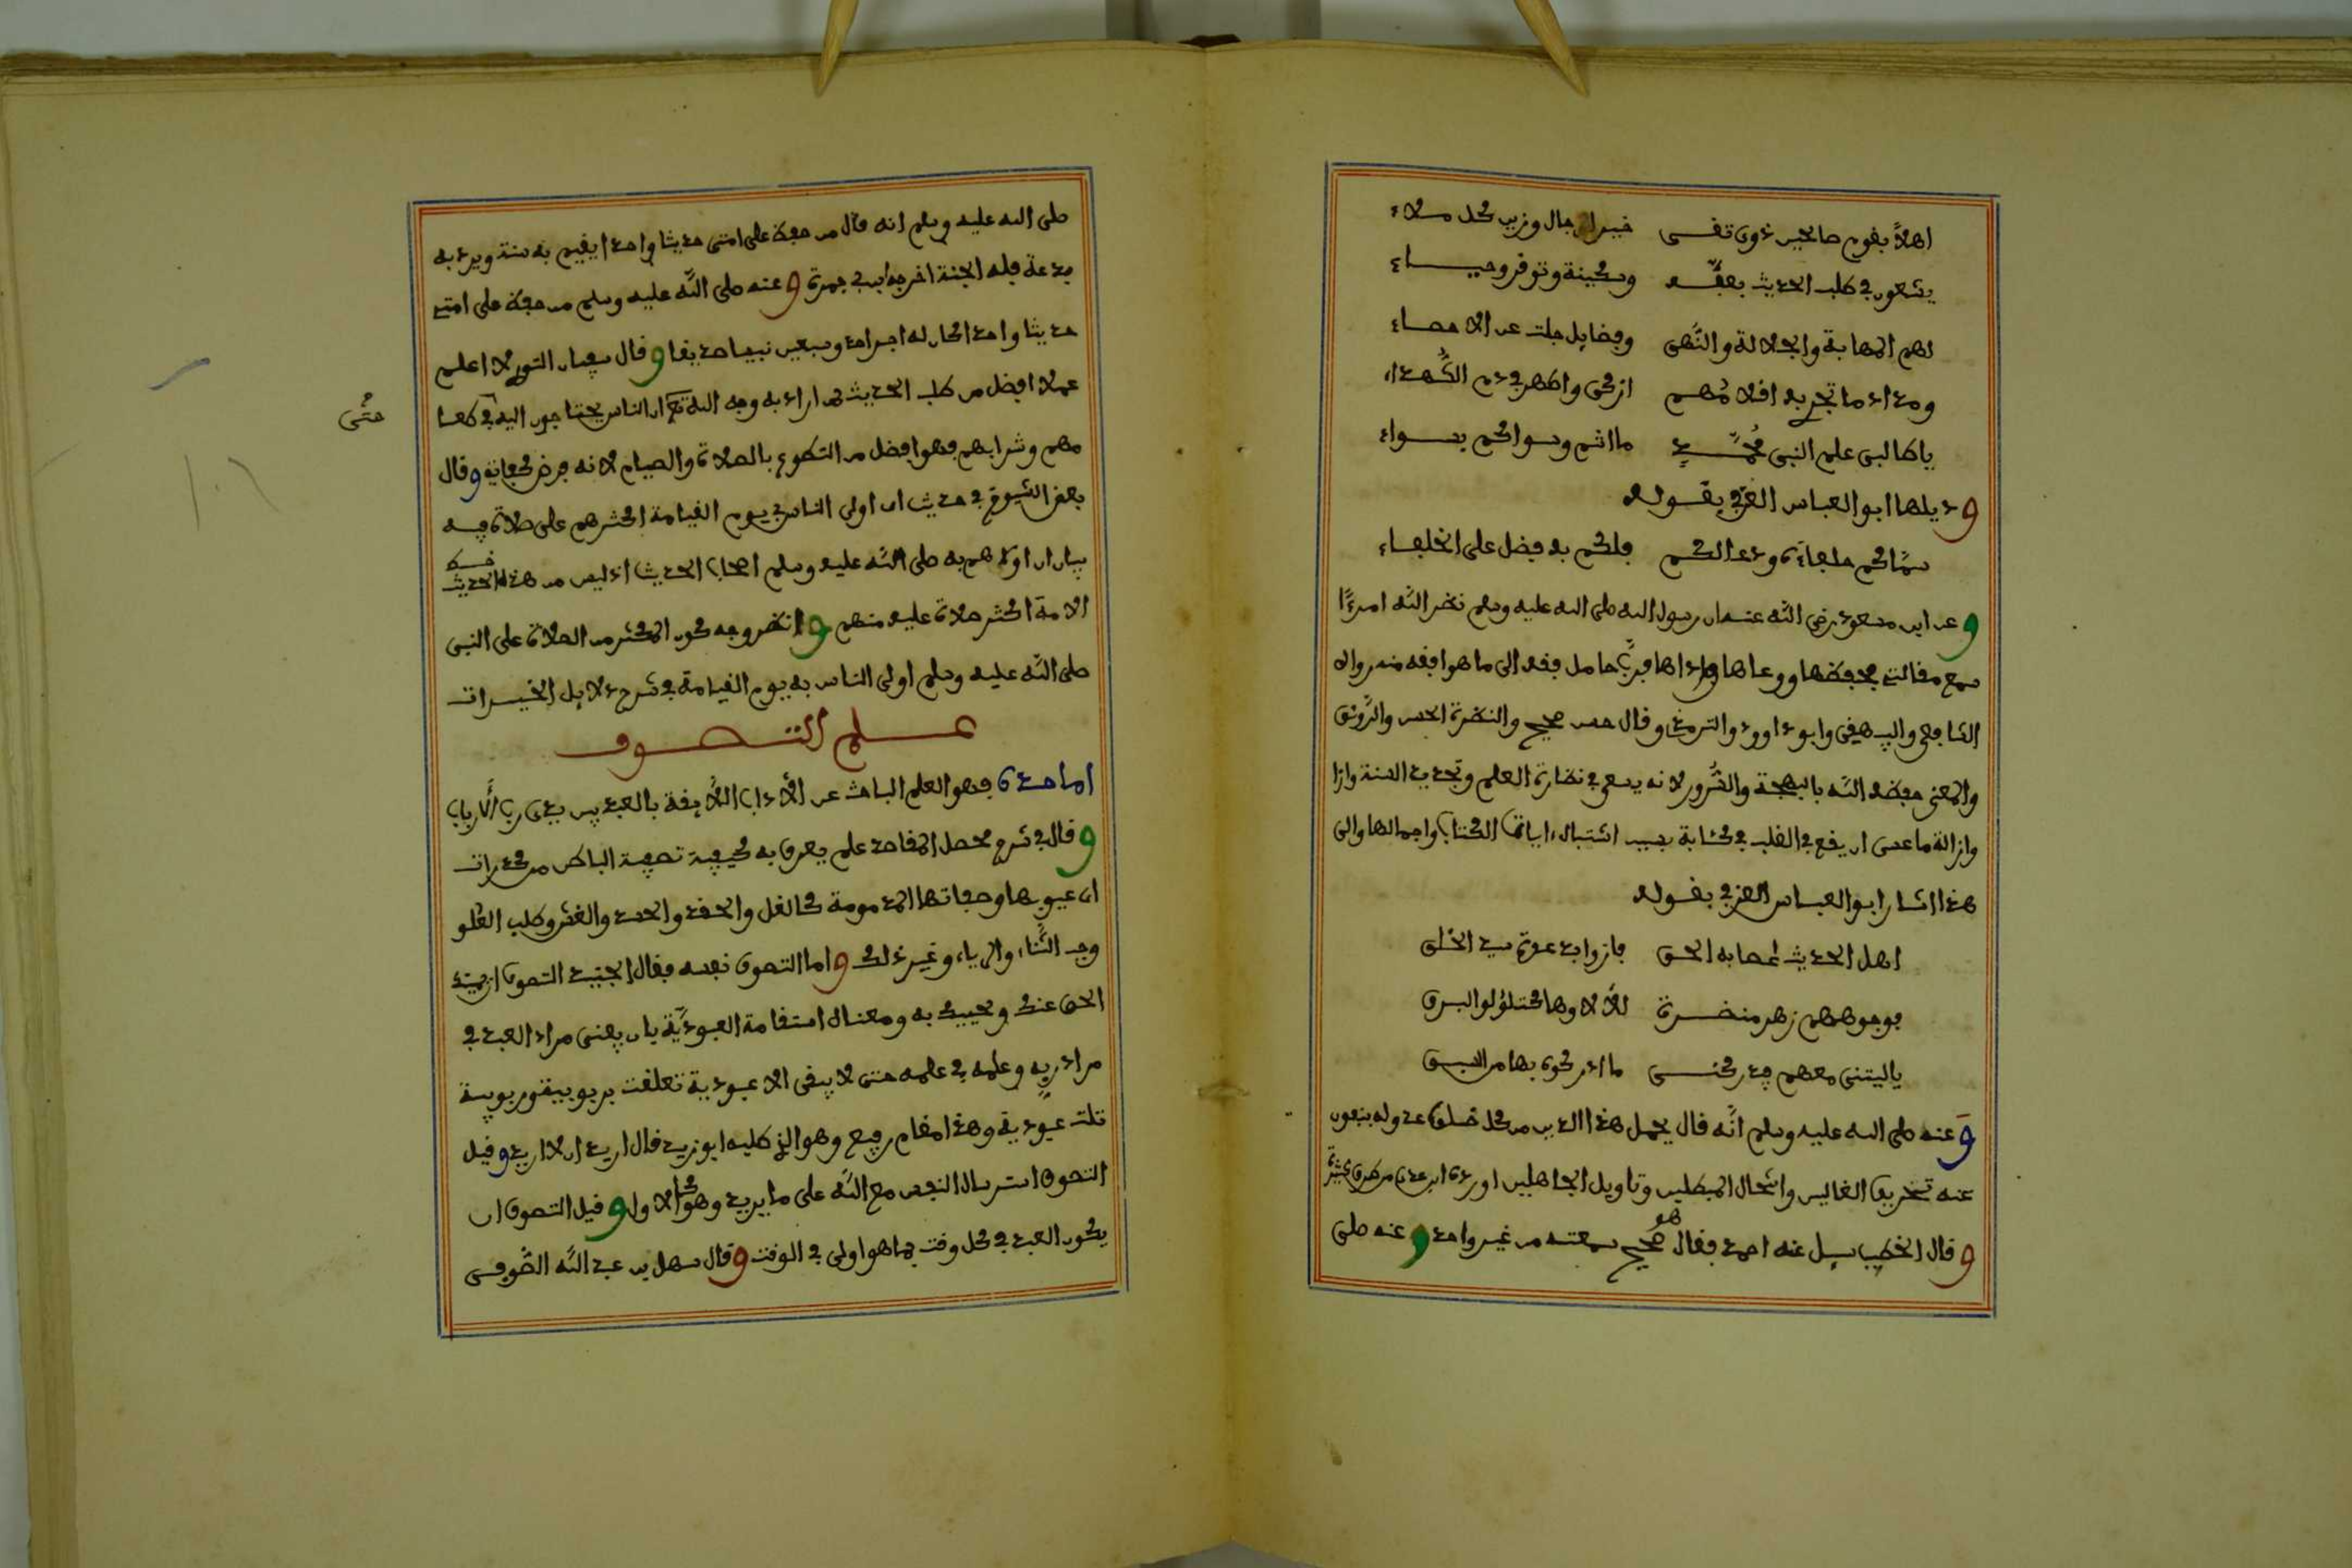 اهلا بقوم صالحين ذوى تقى خير الرجال وزين كل ملاء
يسعون في طلب الحديث بعفة وسكينة وتوقر وحياء
لهم المهابة والجلالة والنهى وفضايل جلت عن الاحصاء
ومداد ما تجرى به اقلامهم ازكى واطهر من دم الشهداء
يا طالبى علم النبى محمد ما انتم وسواكم بسواء
وذيلها ابو العباس العزفي بقوله
سماكم خلفاءه ودعا لكم فلكم به فضل على الخلفاء
وعن ابن مسعود رضى الله عنه ان رسول الله صلى الله عليه وسلم نضر الله امرءا
سمع مقالتى فحفظها ووعاها واداها فرب حامل فقه الى من هو افقه منه رواه
الشافعى والبيهقى وابو داوود والترمذى وقال حسن صحيح والنضرة الحسن والرونق
والمعنى خصه الله بالبهجة والسرور لانه يسعى في نضارة العلم وتجديد السنة وازا
وازالة ما عسى ان يقع في القلب من كئابة بسبب اشتباه ايات الكتاب واجمالها والى
هذا اشار ابو العباس العزفي بقوله
اهل الحديث عصابة الحق فازوا بدعوة سيد الخلق
فوجوههم زهر منضرة لألاوها كتلؤلو البرق
ياليتنى معهم فيدركنى ما ادركوه بها من السبق
وعنه صلى الله عليه وسلم انه قال يحمل هذا الدين من كل خلف عدوله ينفون
عنه تحريف الغالين وانتحال المبطلين وتاويل الجاهلين اورده ابن عدى من طرق كثيرة
وقال الخطيب سيل عنه احمد فقال هو صحيح سمعته من غير واحد وعنه صلى
صلى الله عليه وسلم انه قال من حفظ على امتى حديثا واحدا يقيم به سنة ويرد به
بدعة فله الجنة اخرجه ابن ابى جمرة وعنه صلى الله عليه وسلم من حفظ على امتى
حديثا واحدا كان له اجر احد وسبعين نبيا صديقا وقال سفيان الثورى لا اعلم
عملا افضل من طلب الحديث لمن اراد به وجه الله تع ان الناس يحتاجون اليه في طعا
حتى
مهم وشرابهم فهو افضل من التطوع بالصلاة والصيام لانه فرض كفاية وقال
بعض الشيوخ في حديث ان اولى الناس بى يوم القيامة اكثرهم على صلاة فيه
بيان ان اولاهم به صلى الله عليه وسلم اصحاب الحديث اذ ليس من هذه الحديث
الامة اكثر صلاة عليه منهم وانظر وجه كون المكثر من الصلاة على النبى
صلى الله عليه وسلم اولى الناس به يوم القيامة في شرح دلايل الخيرات
علم التصوف
اما حده فهو العلم الباحث عن الأداب اللأيقة بالعبد بين يدى رب الأرباب
وقال في شرح محصل المقاصد علم يعرف به كيفية تصفية الباطن من كدرات
اى عيوبها وصفاتها المذمومة كالغل والحقد والحسد والغش وطلب العلو
وحب الثناء والرياء وغير ذلك واما التصوف نفسه فقال الجنيد التصوف ان يميتك
الحق عنك ويحييك به ومعناه استقامة العبودية بان يفنى مراد العبد في
مراد ربه وعلمه في علمه حتى لا يبقى الا عبودية تعلقت بربوبية وربوبية
تلت عبودية وهذا مقام رفيع وهو الذى طلبه ابو زيد قال اريد ان لا اريد وقيل
التصوف استرسال النفس مع الله على ما يريد وهو كالاول وقيل التصوف ان
يكون العبد في كل وقت بما هو اولى في الوقت وقال سهل بن عبد الله الصوفى